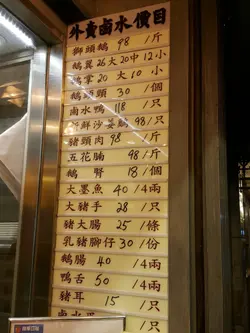 外賣鹵水價目
獅頭鵝 98 /斤
鵝翼 26大20中12小
鵝掌 20大10小
鵝頭頸 30 /個
鹵水鴨 118 /只
豬頭肉 98 /斤
五花腩 /斤
鵝腎 18 /個
大墨魚 40 /4兩
大豬手 28 /只
豬大腸 25 /條
乳豬腳仔 30 /份
鵝腸 40 /4兩
鴨舌 50 /4兩
豬耳 15 /只
鹵水